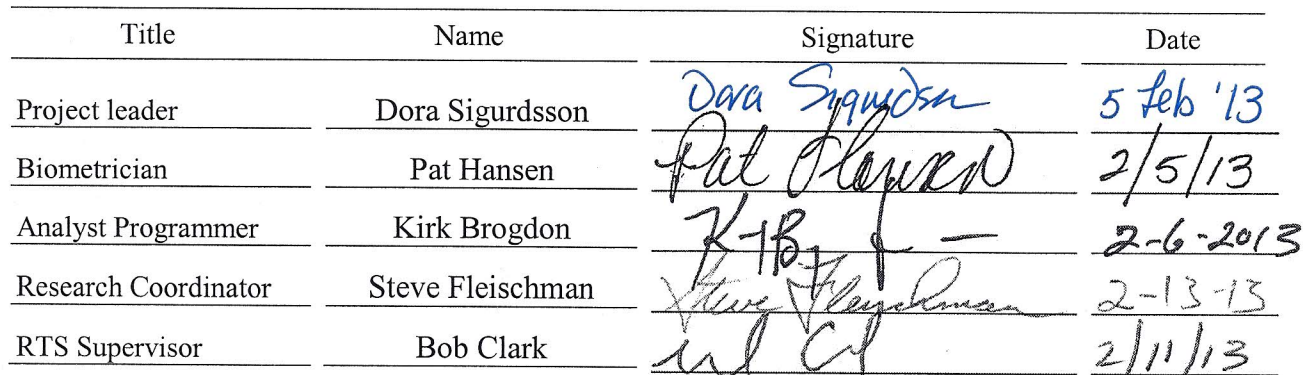 Title Name Signature Date
Project leader Dora Sigurdsson Dora Sigurdsson 5 Feb '13
Biometrician Pat Hansen Pat Hansen 2/5/13
Analyst Programmer Kirk Brogdon 2-6-2013
Research Coordinator Steve Fleischman Steve Fleischman 2-13-13
RTS Supervisor Bob Clark 2/11/13